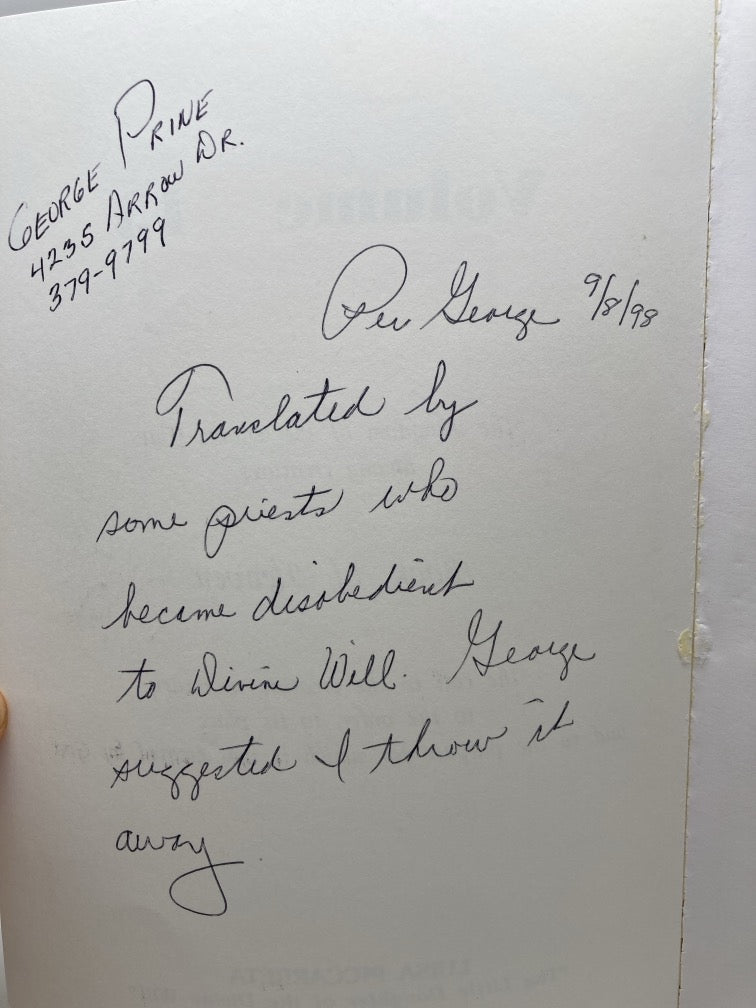 GEORGE PRINE
4235 ARROW DR.
379-9799
Per George 9/8/98
Translated by
some priests who
became disobedient
to Divine Will. George
suggested I throw it
away